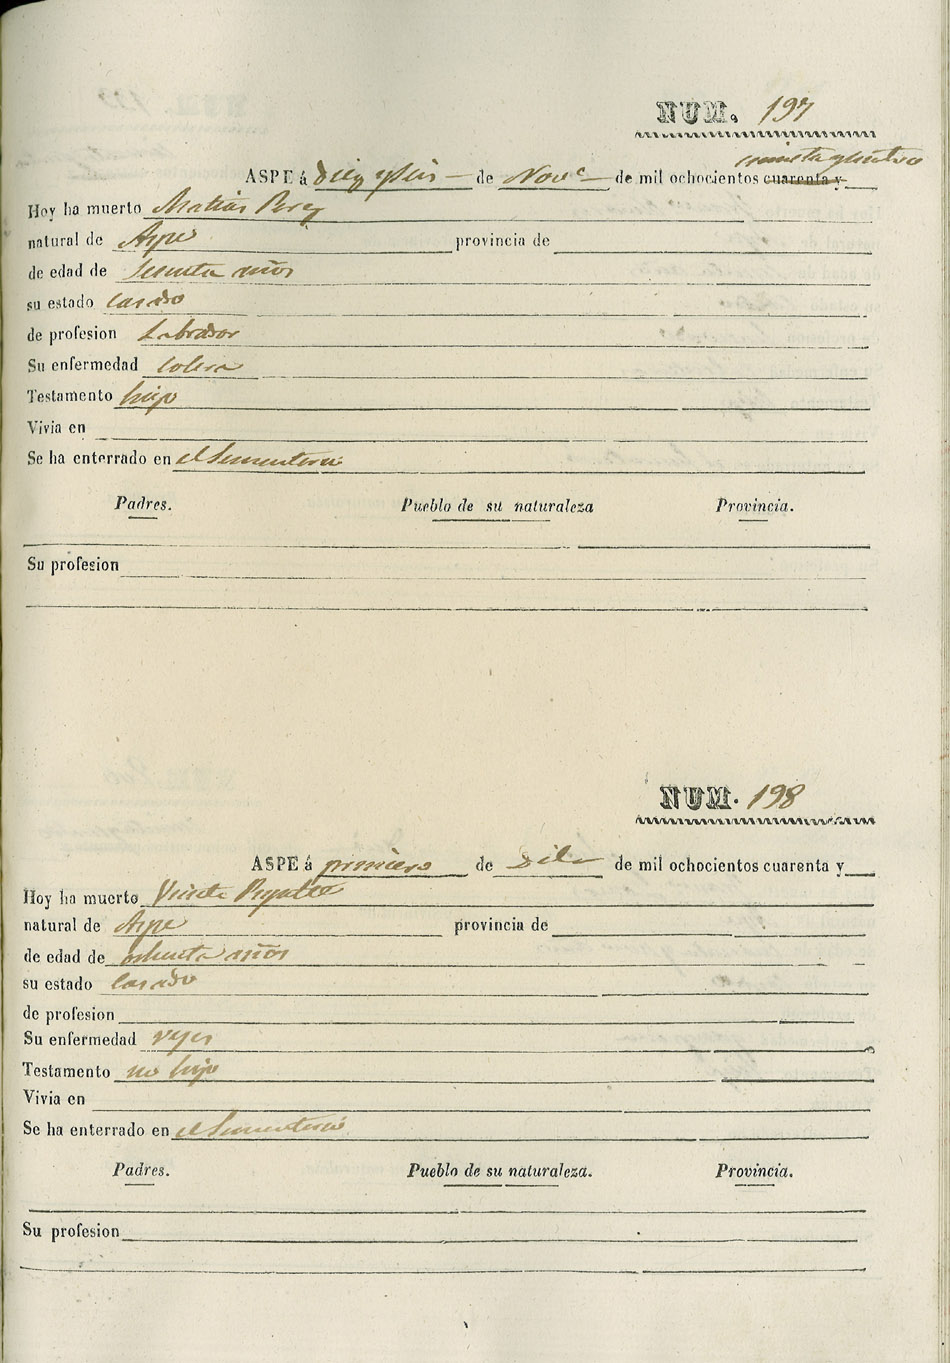 NUM. 197
cincuenta y cuatro
ASPE á diez y seis de Nov.e de mil ochocientos cuarenta y
Hoy ha muerto Matias Perez
natural de Aspe provincia de
de edad de sesenta años
su estado casado
de profesion Labrador
Su enfermedad colera
Testamento hizo
Vivia en
Se ha enterrado en el Sementerio
Padres. Pueblo de su naturaleza Provincia.
Su profesion
NUM. 198
ASPE á primiero de de mil ochocientos cuarenta y
Hoy ha muerto
natural de Aspe provincia de
de edad de años
su estado casado
de profesion
Su enfermedad
Testamento no hizo
Vivia en
Se ha enterrado en el Sementerio
Padres. Pueblo de su naturaleza. Provincia.
Su profesion